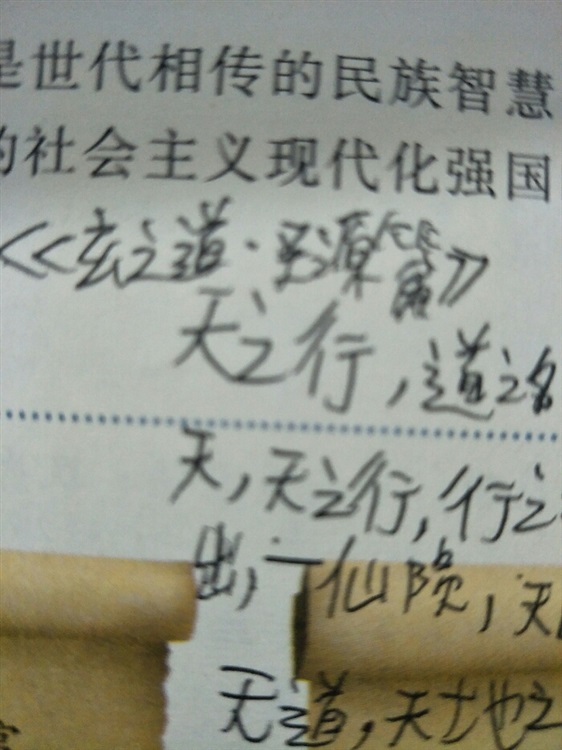 是世代相传的民族智慧
的社会主义现代化强国
《玄之道·源篇》
天之行,道之名
天,天之行,行之
出,一仙陨,天
无道,天地之